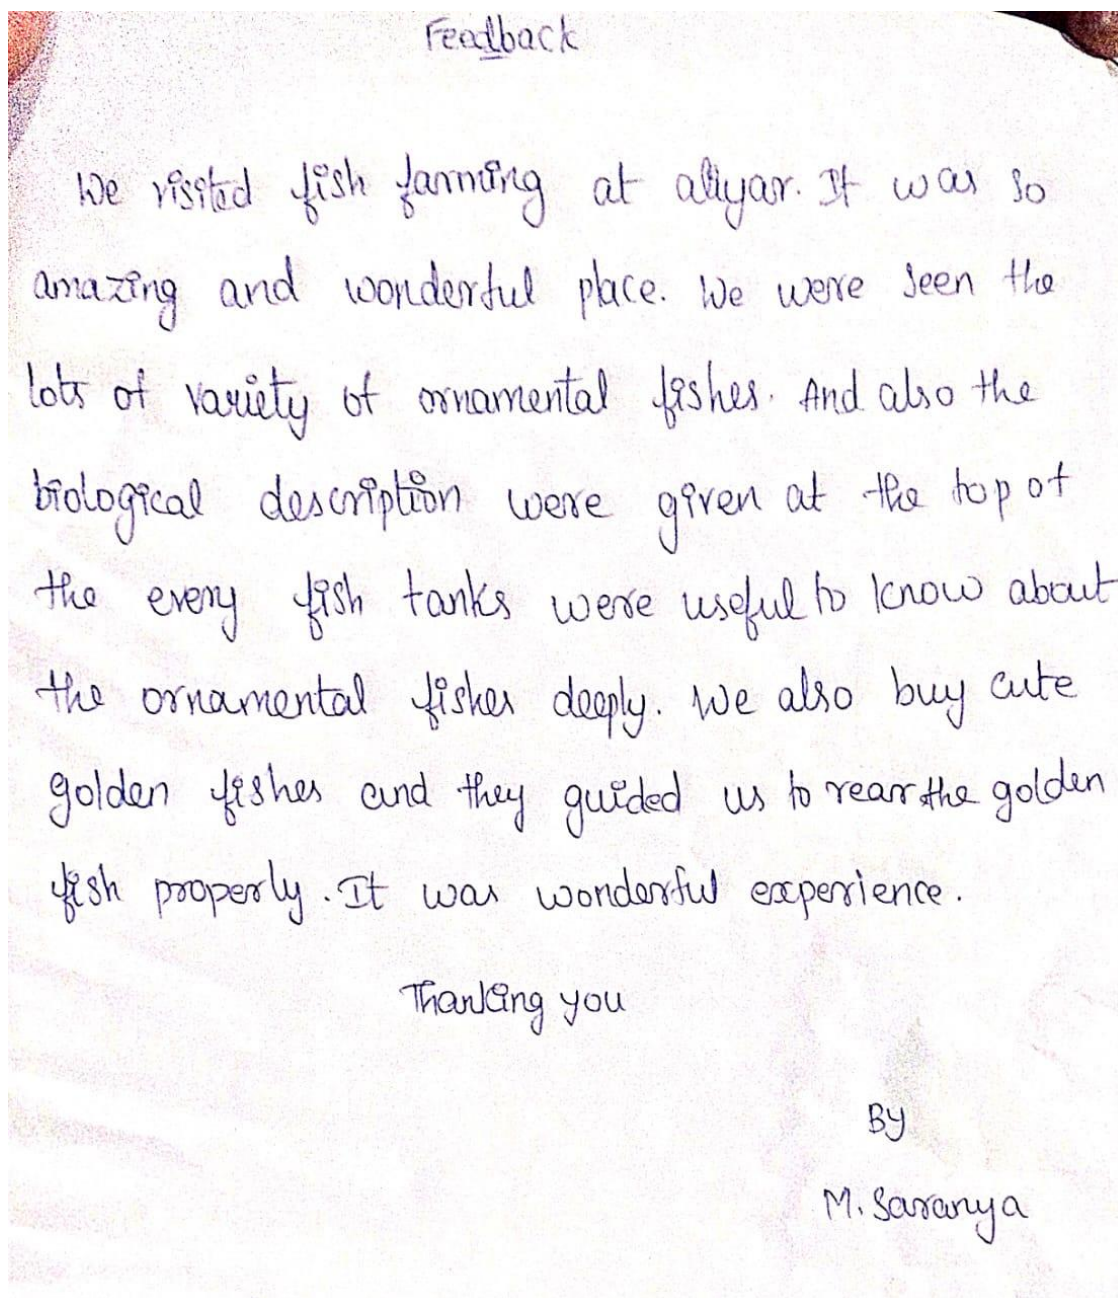 Feedback
We visited fish farming at aliyar. It was so
amazing and wonderful place. We were seen the
lots of variety of ornamental fishes. And also the
biological description were given at the top of
the every fish tanks were useful to know about
the ornamental fishes deeply. We also buy cute
golden fishes and they guided us to rear the golden
fish properly. It was wonderful experience.
Thanking you
By
M. Saranya